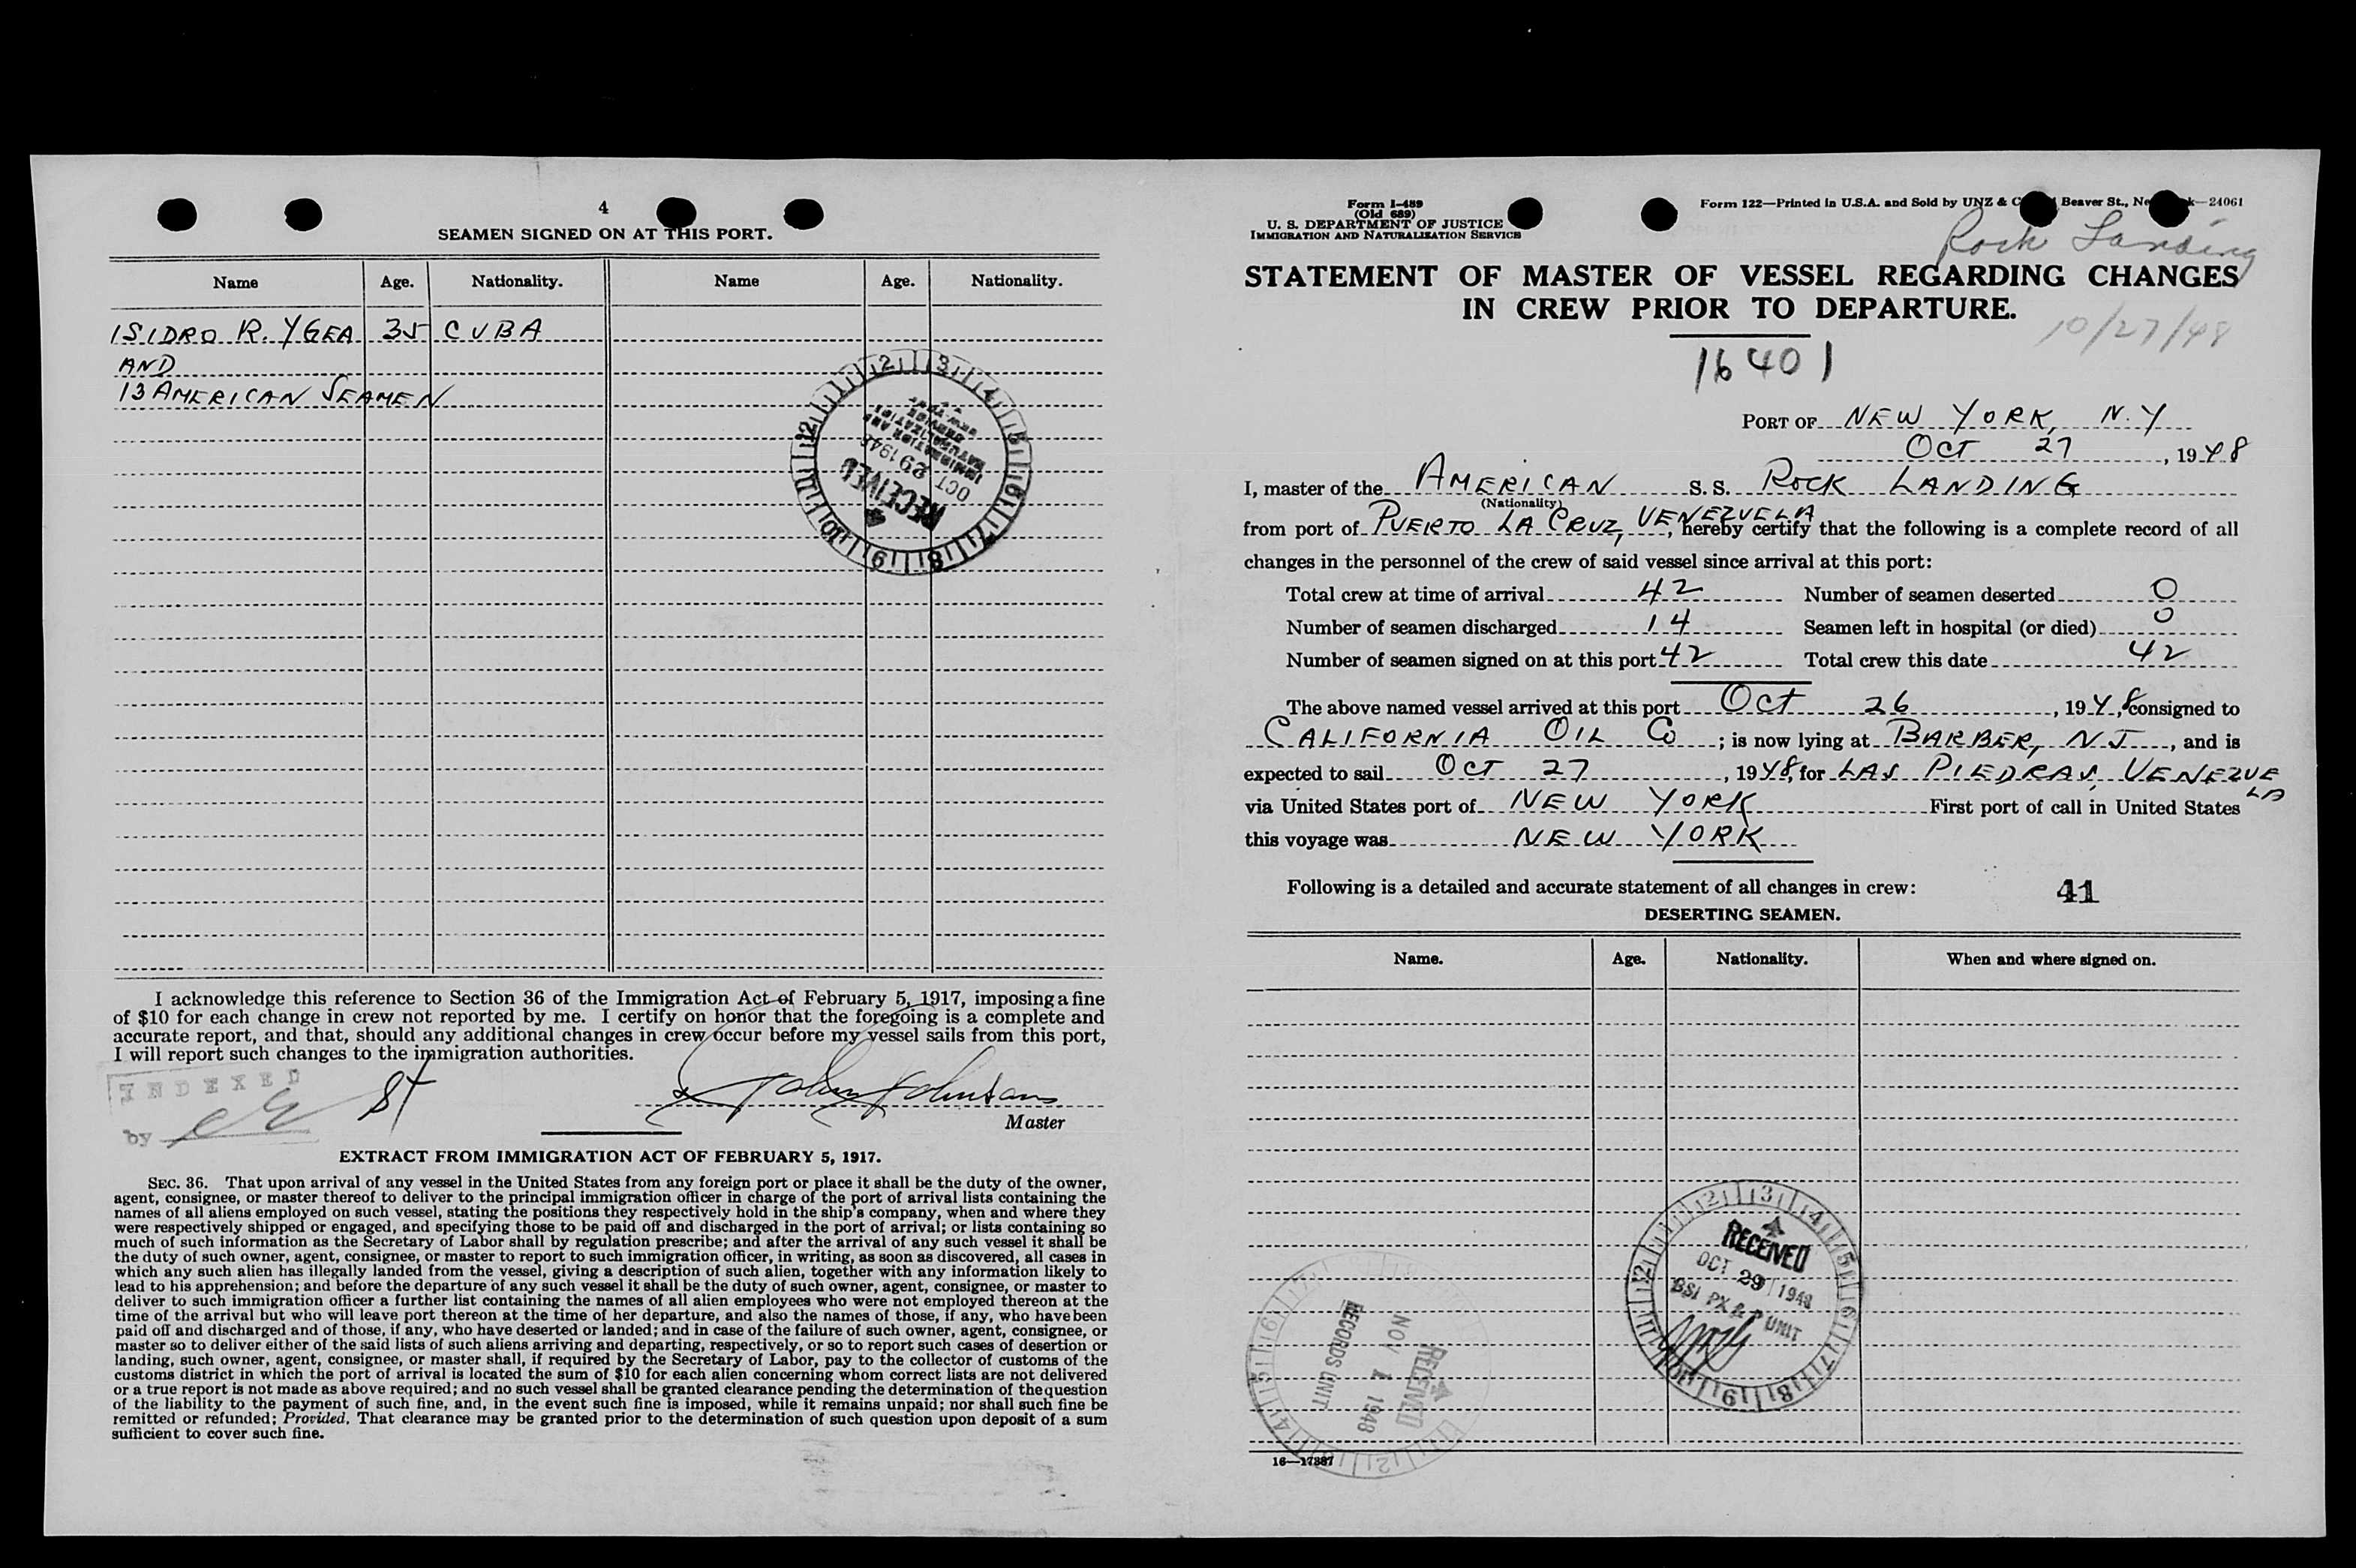 4
SEAMEN SIGNED ON AT THIS PORT.
Name Age. Nationality. Name Age. Nationality.
ISIDRO R. YGEA 35 CUBA
AND
13 AMERICAN SEAMEN
RECEIVED
OCT 29 1948
IMMIGRATION AND
NATURALIZATION
SERVICE
I acknowledge this reference to Section 36 of the Immigration Act of February 5, 1917, imposing a fine
of $10 for each change in crew not reported by me. I certify on honor that the foregoing is a complete and
accurate report, and that, should any additional changes in crew occur before my vessel sails from this port,
I will report such changes to the immigration authorities.
INDEXED
by
John Johnson
Master
EXTRACT FROM IMMIGRATION ACT OF FEBRUARY 5, 1917.
SEC. 36. That upon arrival of any vessel in the United States from any foreign port or place it shall be the duty of the owner,
agent, consignee, or master thereof to deliver to the principal immigration officer in charge of the port of arrival lists containing the
names of all aliens employed on such vessel, stating the positions they respectively hold in the ship's company, when and where they
were respectively shipped or engaged, and specifying those to be paid off and discharged in the port of arrival; or lists containing so
much of such information as the Secretary of Labor shall by regulation prescribe; and after the arrival of any such vessel it shall be
the duty of such owner, agent, consignee, or master to report to such immigration officer, in writing, as soon as discovered, all cases in
which any such alien has illegally landed from the vessel, giving a description of such alien, together with any information likely to
lead to his apprehension; and before the departure of any such vessel it shall be the duty of such owner, agent, consignee, or master to
deliver to such immigration officer a further list containing the names of all alien employees who were not employed thereon at the
time of the arrival but who will leave port thereon at the time of her departure, and also the names of those, if any, who have been
paid off and discharged and of those, if any, who have deserted or landed; and in case of the failure of such owner, agent, consignee, or
master so to deliver either of the said lists of such aliens arriving and departing, respectively, or so to report such cases of desertion or
landing, such owner, agent, consignee, or master shall, if required by the Secretary of Labor, pay to the collector of customs of the
customs district in which the port of arrival is located the sum of $10 for each alien concerning whom correct lists are not delivered
or a true report is not made as above required; and no such vessel shall be granted clearance pending the determination of the question
of the liability to the payment of such fine, and, in the event such fine is imposed, while it remains unpaid; nor shall such fine be
remitted or refunded; Provided, That clearance may be granted prior to the determination of such question upon deposit of a sum
sufficient to cover such fine.
Form I-489
(Old 689)
U. S. DEPARTMENT OF JUSTICE
IMMIGRATION AND NATURALIZATION SERVICE
Form 122—Printed in U.S.A. and Sold by UNZ & C Beaver St., Ne k—24061
Rock Landing
STATEMENT OF MASTER OF VESSEL REGARDING CHANGES
IN CREW PRIOR TO DEPARTURE.
10/27/48
16401
PORT OF NEW YORK, N.Y
OCT 27, 1948
I, master of the AMERICAN S. S. ROCK LANDING
(Nationality)
from port of PUERTO LA CRUZ, VENEZUELA, hereby certify that the following is a complete record of all
changes in the personnel of the crew of said vessel since arrival at this port:
Total crew at time of arrival 42 Number of seamen deserted 0
Number of seamen discharged 14 Seamen left in hospital (or died) 0
Number of seamen signed on at this port 42 Total crew this date 42
The above named vessel arrived at this port OCT 26, 1948, consigned to
CALIFORNIA OIL CO; is now lying at BARBER, NJ, and is
expected to sail OCT 27, 1948, for LAS PIEDRAS, VENEZUELA
via United States port of NEW YORK First port of call in United States
this voyage was NEW YORK
Following is a detailed and accurate statement of all changes in crew: 41
DESERTING SEAMEN.
Name. Age. Nationality. When and where signed on.
RECEIVED
OCT 29 1948
BSI PX & P UNIT
RECEIVED
NOV 1 1948
RECORDS UNIT
16—17887